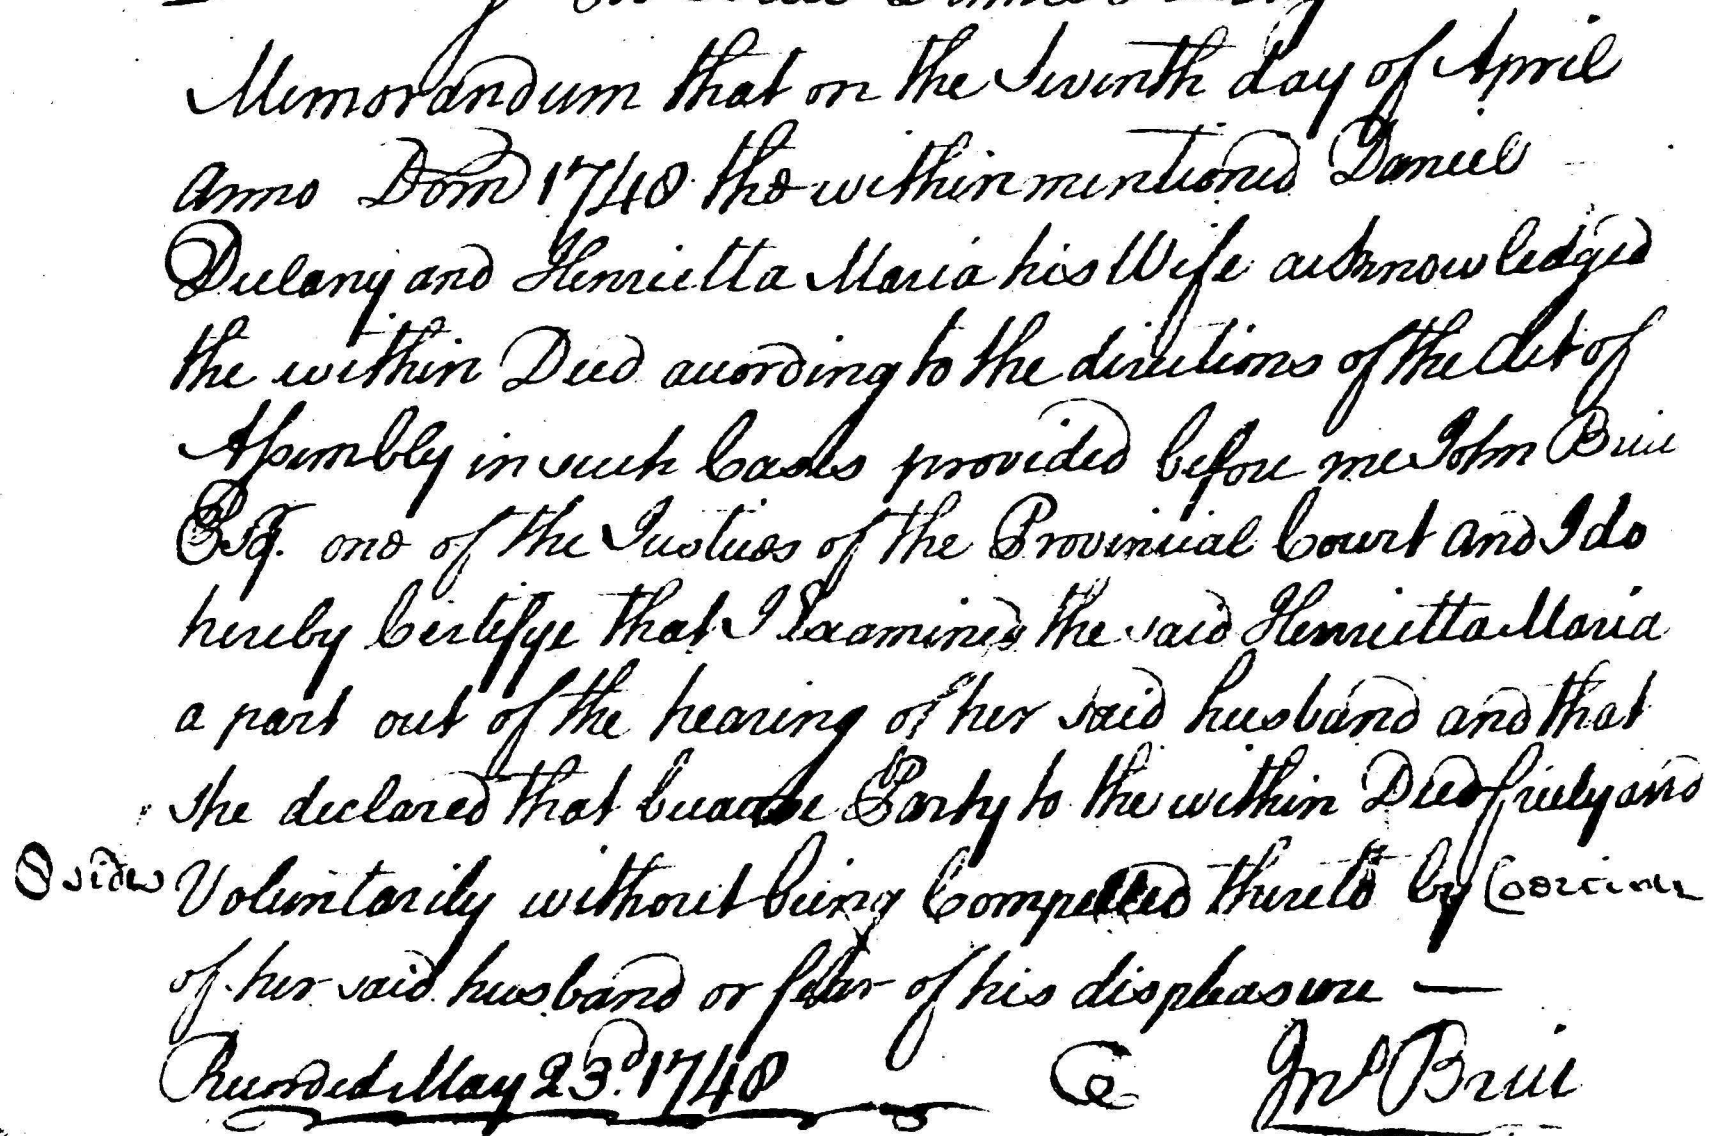 Memorandum that on the Seventh day of April
Anno Dom 1748 the within mentioned Daniel
Dulany and Henrietta Maria his Wife acknowledged
the within Deed according to the directions of the Act of
Assembly in such Cases provided before me John Brice
Esq. one of the Justices of the Provincial Court and I do
hereby Certifye that I Examined the said Henrietta Maria
a part out of the hearing of her said husband and that
she declared that became Party to the within Deed freely and
8 sides Voluntarily without being Compelled thereto by Coercion
of her said husband or fear of his displeasure —
Recorded May 23d. 1748 Jno Brice